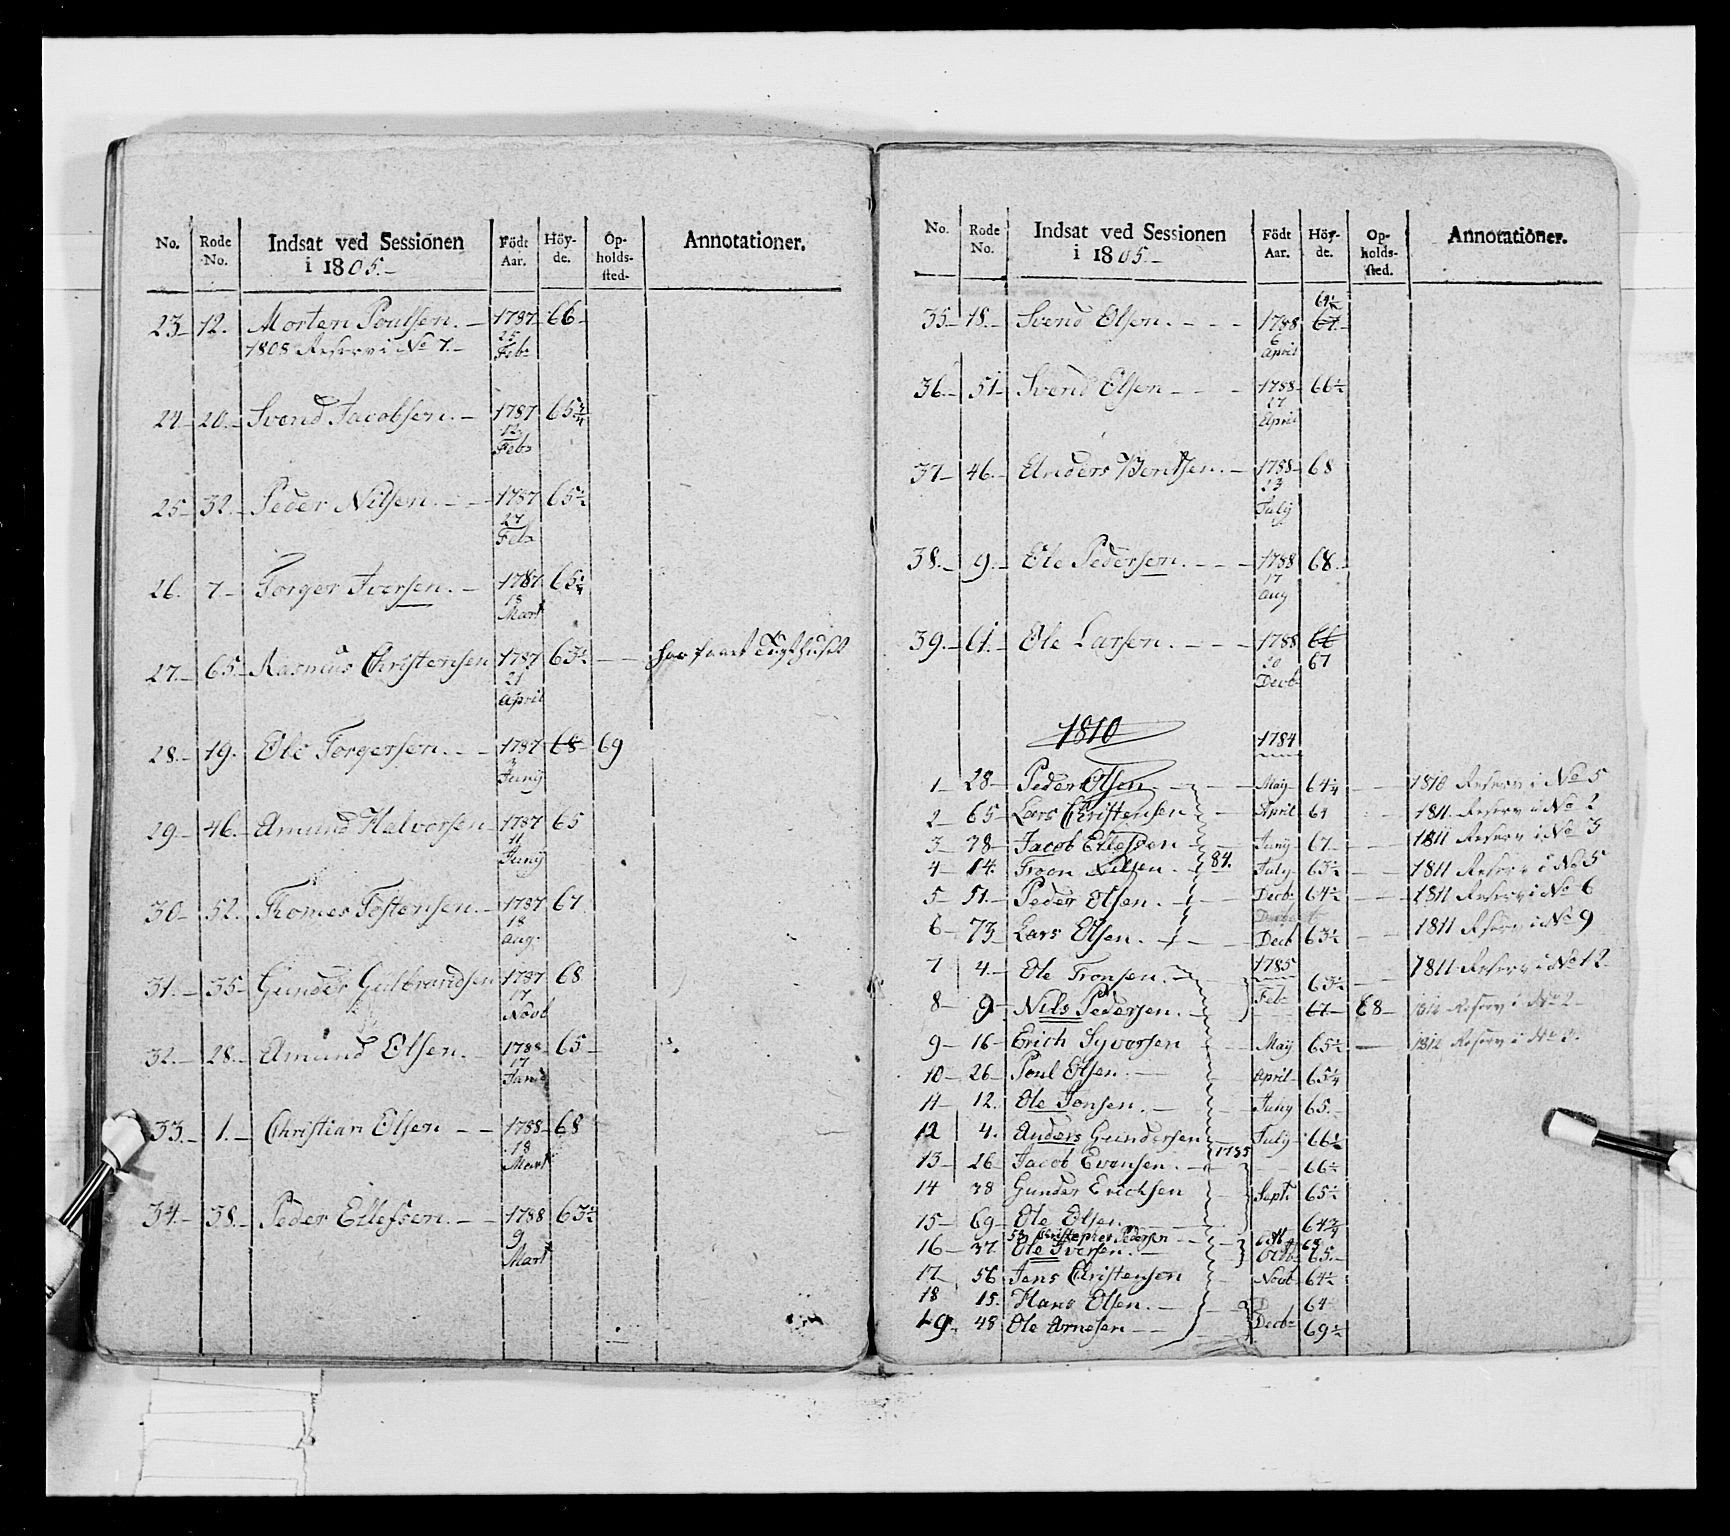 No. Rode No. Indsat ved Sessionen i 1805.- Födt Aar. Höyde. Opholdssted. Annotationer.
23- 12. Morten Poulsen. - 1787 66-
1808 Reserv i No 7.- 25 Feb:
24- 20.- Svend Jacobsen. - 1787 65 3/4
12 Feb:
25- 32.- Peder Nilsen. - - 1787 65 1/2
27 Feb:
26. 7- Torger Iversen. - 1787 65 1/4
18 Mart
27.- 65- Rasmus Christensen 1787 63 1/2 - -
21 April
28.- 19. Ole Torgersen. - - 1787 68- 69
Juny
29- 46.- Amund Halvorsen 1787 65
11 Juny
30- 52. Thomes Tostensen. - 1787 67
18 Aug:
31.- 35- Gunder Gulbrandsen 1787 68
17 Novb
32.- 28.- Amund Olsen. - 1788 65-
17 Janu
33.- 1.- Christian Olsen - - 1788 68
18 Mart
34.- 38.- Peder Ellefsen. - - 1788 63 1/2
9 Mart
No. Rode No. Indsat ved Sessionen i 1805.- Födt Aar. Höyde. Opholdssted. Annotationer.
35- 18.- Svend Olsen. - - - 1788 67-
6 April
36.- 51- Svend Olsen - - - 1788 66 1/2
27 April
37- 46.- Anders Bentsen. - 1788 68
23 July
38.- 9.- Ole Pedersen. - - - 1788 68.-
17 Aug
39.- 61- Ole Larsen. - - - 1788 66
20 Decb: 67
1810 1784
1- 28- Peder Olsen - - - May 64 1/4 - - 1810 Reserv i No 5
2- 65- Lars Christensen - April 61 1811. Reserv i No 2
3- 38- Jacob Ellefsen - - Juny 67- 1811 Reserv i No 3
4- 14. Troen Nilsen. - 84. July 63 1/2 - - 1811 Reserv i No 5
5- 51.- Peder Olsen. - - Decb: 64 1/2 - - 1811 Reserv i No 6
6- 73- Lars Olsen. - - Decb 63 1/2 - - 1811 Reserv i No 9
7 4.- Ole Tronsen. - 1785 63 1/2 - - 1811 Reserv i No 12
8- 9- Nils Pedersen. - Feb: 67- 68- 1812 Reserv i No 2-
9- 16- Erich Syversen May 65 1/2 - 1812 Reserv i No
10- 26- Poul Olsen. - April 65 1/4
11- 12. Ole Jonsen. - Juny 65.-
12 4. Anders Gundersen July 66 1/4
13- 26- Jacob Evensen. - 1785 66 1/2
14 38 Gunder Erichsen Sept: 65 1/2
15- 69- Ole Olsen 64 3/4
53 Christopher Pedersen
16- 37. Ole Iversen. - Octb 65.-
17- 56 Jens Christensen Novb 64 1/2
18 15. Hans Olsen. - 64
19- 48 Ole Arnesen - - Decb: 69 1/2